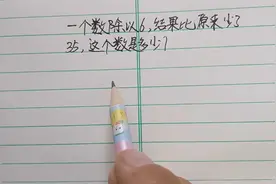 一个数除以6,结果比原来少了
35,这个数是多少?